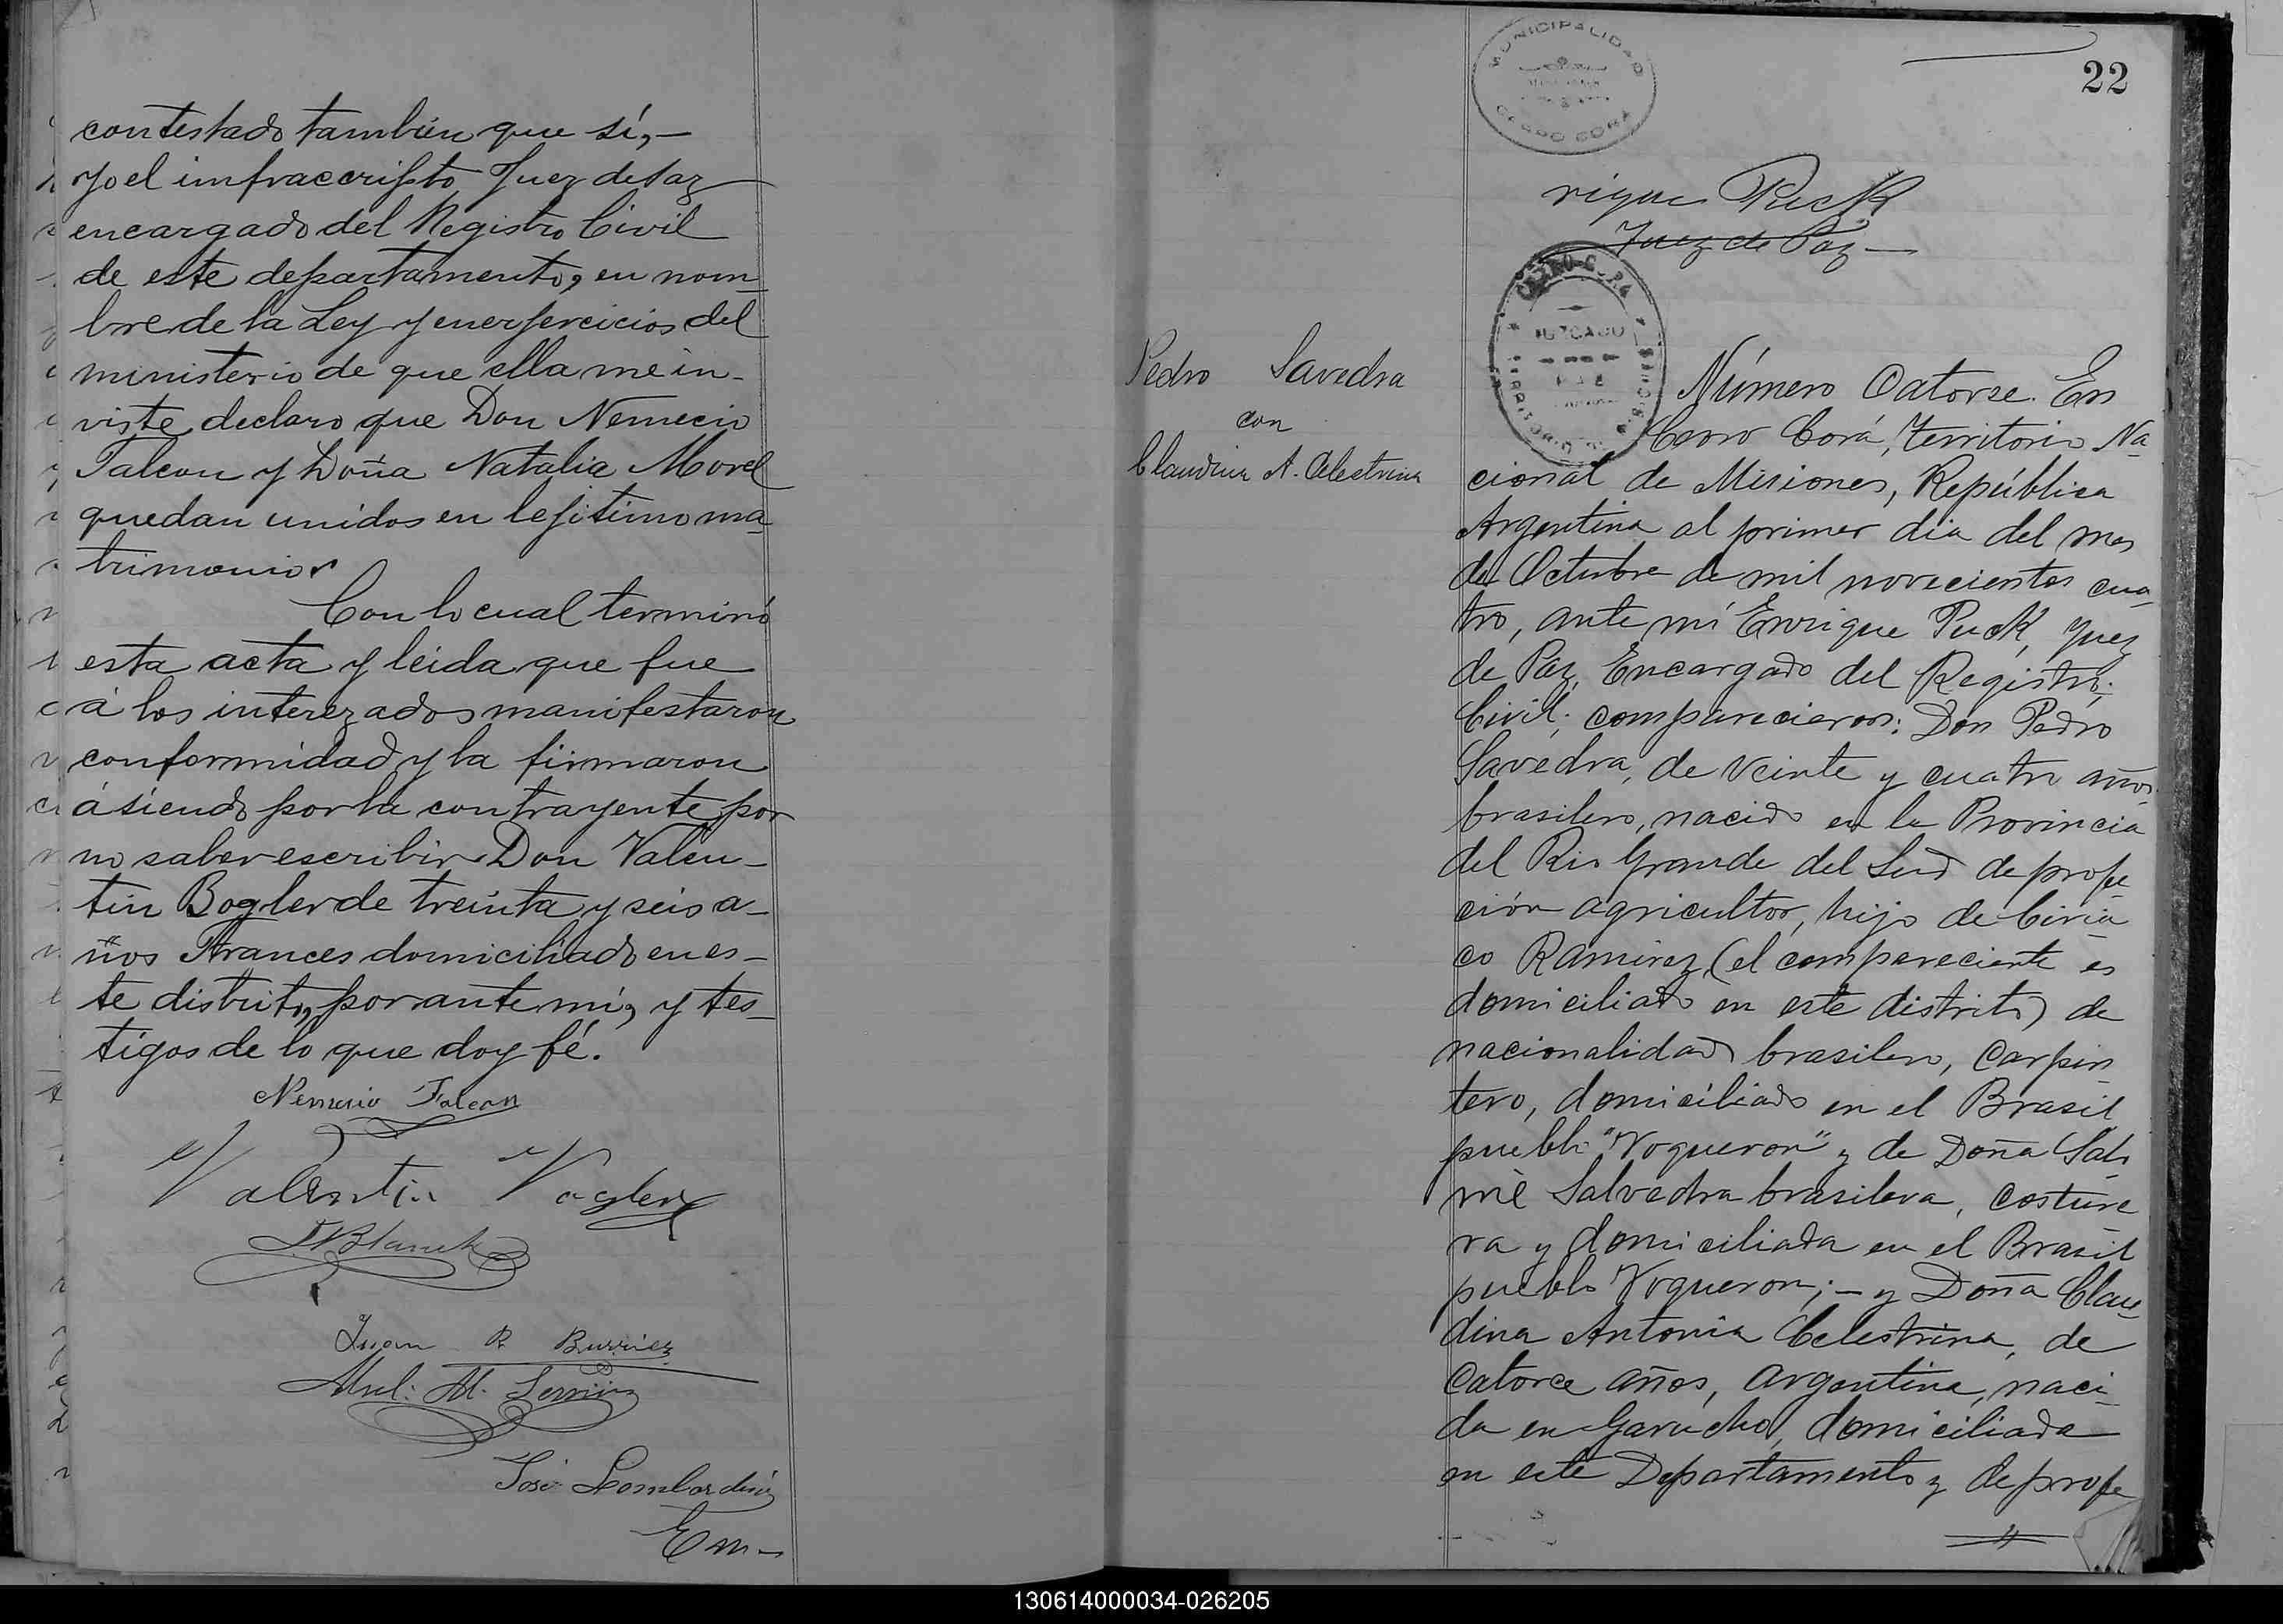 contestado también que sí,—
yo el imfraccripto, Juez de Paz
encargado del Registro Civil
de este departamento, en nom
bre de la Ley y en ejercicios del
ministerio de que ella me in-
viste declaro que Don Nemecio
Falcon y Doña Natalia Morel
quedan unidos en lejitimo ma
trimonio.
Con lo cual terminó
esta acta y leida que fue
á los interezados manifestaron
conformidad y la firmaron
ásiendo por la contrayente por
no saber escribir Don Valen-
tin Bogler de treinta y seis a-
ños Frances domiciliado en es-
te distrito, por ante mi, y tes-
tigos de lo que doy fé.
Nemecio Falcon
Valentin Vogler
Juan R. Burriez
José Lombardini
En-
MUNICIPALIDAD
CERRO CORÁ
22
rique Puck
Juez de Paz—
CERRO CORÁ
JUZGADO
DE
PAZ
Pedro Savedra
con
Claudina A. Celestrina
Número Catorse. En
Cerro Corá, Territorio Na
cional de Misiones, República
Argentina al primer dia del mes
de Octubre de mil novecientos cua
tro, ante mí Enrique Puck, Juez
de Paz, Encargado del Registro
Civil; comparecieron: Don Pedro
Savedra, de veinte y cuatro años
brasilero, nacido en la Provincia
del Rio Grande del Sud de profe
ción agricultor, hijo de Ciria
co Ramirez, (el compareciente es
domiciliado en este distrito) de
nacionalidad brasilero, Carpin
tero, domiciliado en el Brasil
pueblo "Noqueron" y de Doña Salo
mé Salvedra brasilera, costure
ra y domiciliada en el Brasil
pueblo Noqueron;— y Doña Clau
dina Antonia Celestrina, de
Catorce años, Argentina, naci
da en Garucho, domiciliada
en este Departamento y de profe
130614000034-026205